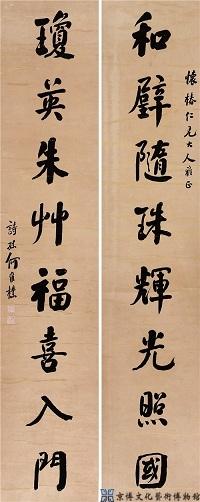 懷椿仁兄大人雅正
和璧隨珠輝光照國
瓊英朱艸福喜入門
詩孫何維樸
京博文化藝術博物館